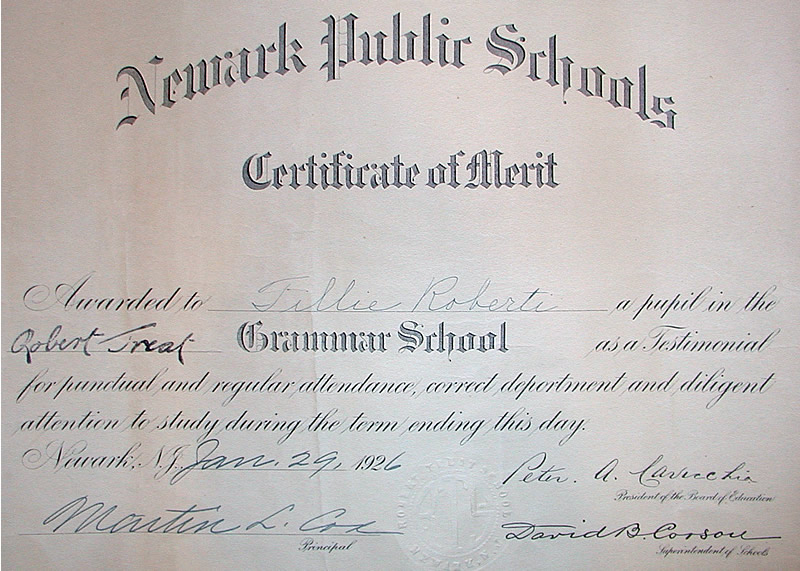 Newark Public Schools
Certificate of Merit
Awarded to Tillie Roberti a pupil in the
Robert Treat Grammar School as a Testimonial
for punctual and regular attendance, correct deportment and diligent
attention to study during the term ending this day.
Newark, N.J. Jan. 29, 1926
Peter. A. Cavicchia
President of the Board of Education
Martin L. Cox
Principal
David B. Corson
Superintendent of Schools